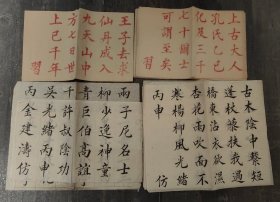 上古大人
孔氏乙己
化及三千
七十國士
可謂至矣
習
王子去求
仙丹成入
九天山中
方七日世
上已千年
習
古木陰中繫短
篷杖藜扶我過
橋東沾衣欲濕
杏花雨吹面不
寒楊柳風光緒
丙申仿
子尼名士
柳少逸神童
巨伯高誼
千許叔陰功
吳光緒丙申
丙全建濤仿